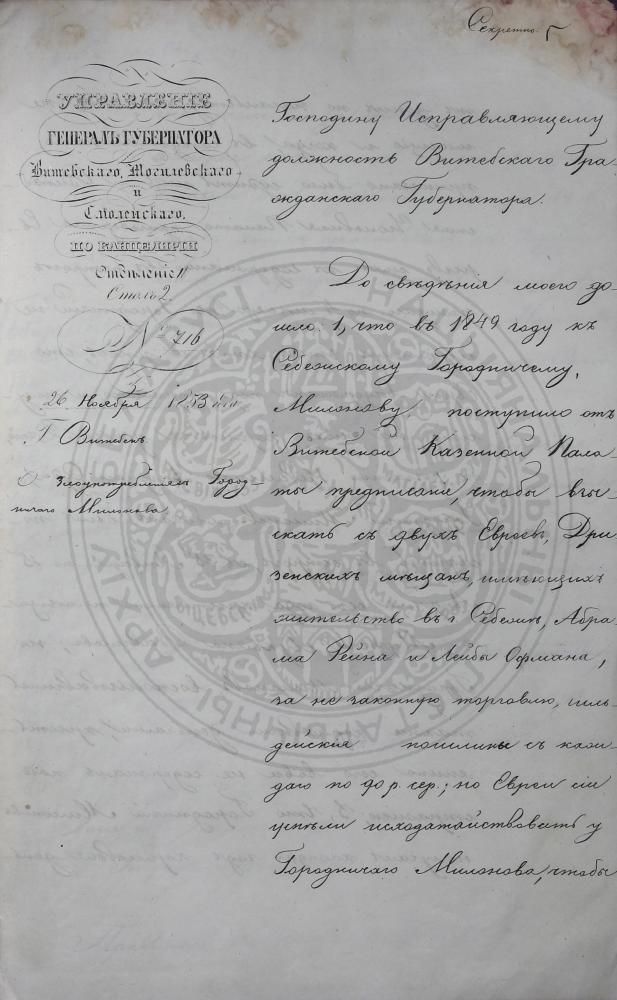 Секретно.
УПРАВЛЕНІЕ
ГЕНЕРАЛЪ ГУБЕРНАТОРА
Витебскаго, Могилевскаго
и
Смоленскаго.
ПО КАНЦЕЛЯРІИ
Отдѣленіе 1
Столъ 2.
№ 716
26 Ноября 1853 года
Г Витебскъ.
О злоупотребленіяхъ Город-
ничаго Милонова.
Господину Исправляющему
должность Витебскаго Гра-
жданскаго Губернатора.
До свѣдѣнія моего до-
шло: 1, что въ 1849 году къ
Себежскому Городничему,
Милонову, поступило отъ
Витебской Казенной Пала-
ты предписаніе, чтобы взы-
скать съ двухъ Евреевъ, Дри-
зенскихъ мѣщанъ, имѣющихъ
жительство въ г Себежѣ, Абра-
ма Рейна и Лейбы Офмана,
за не законную торговлю, гиль-
дейскія пошлины съ каж-
даго по 90 р. сер.; но Евреи сіи
успѣли исходатайствовать у
Городничаго Милонова, чтобы